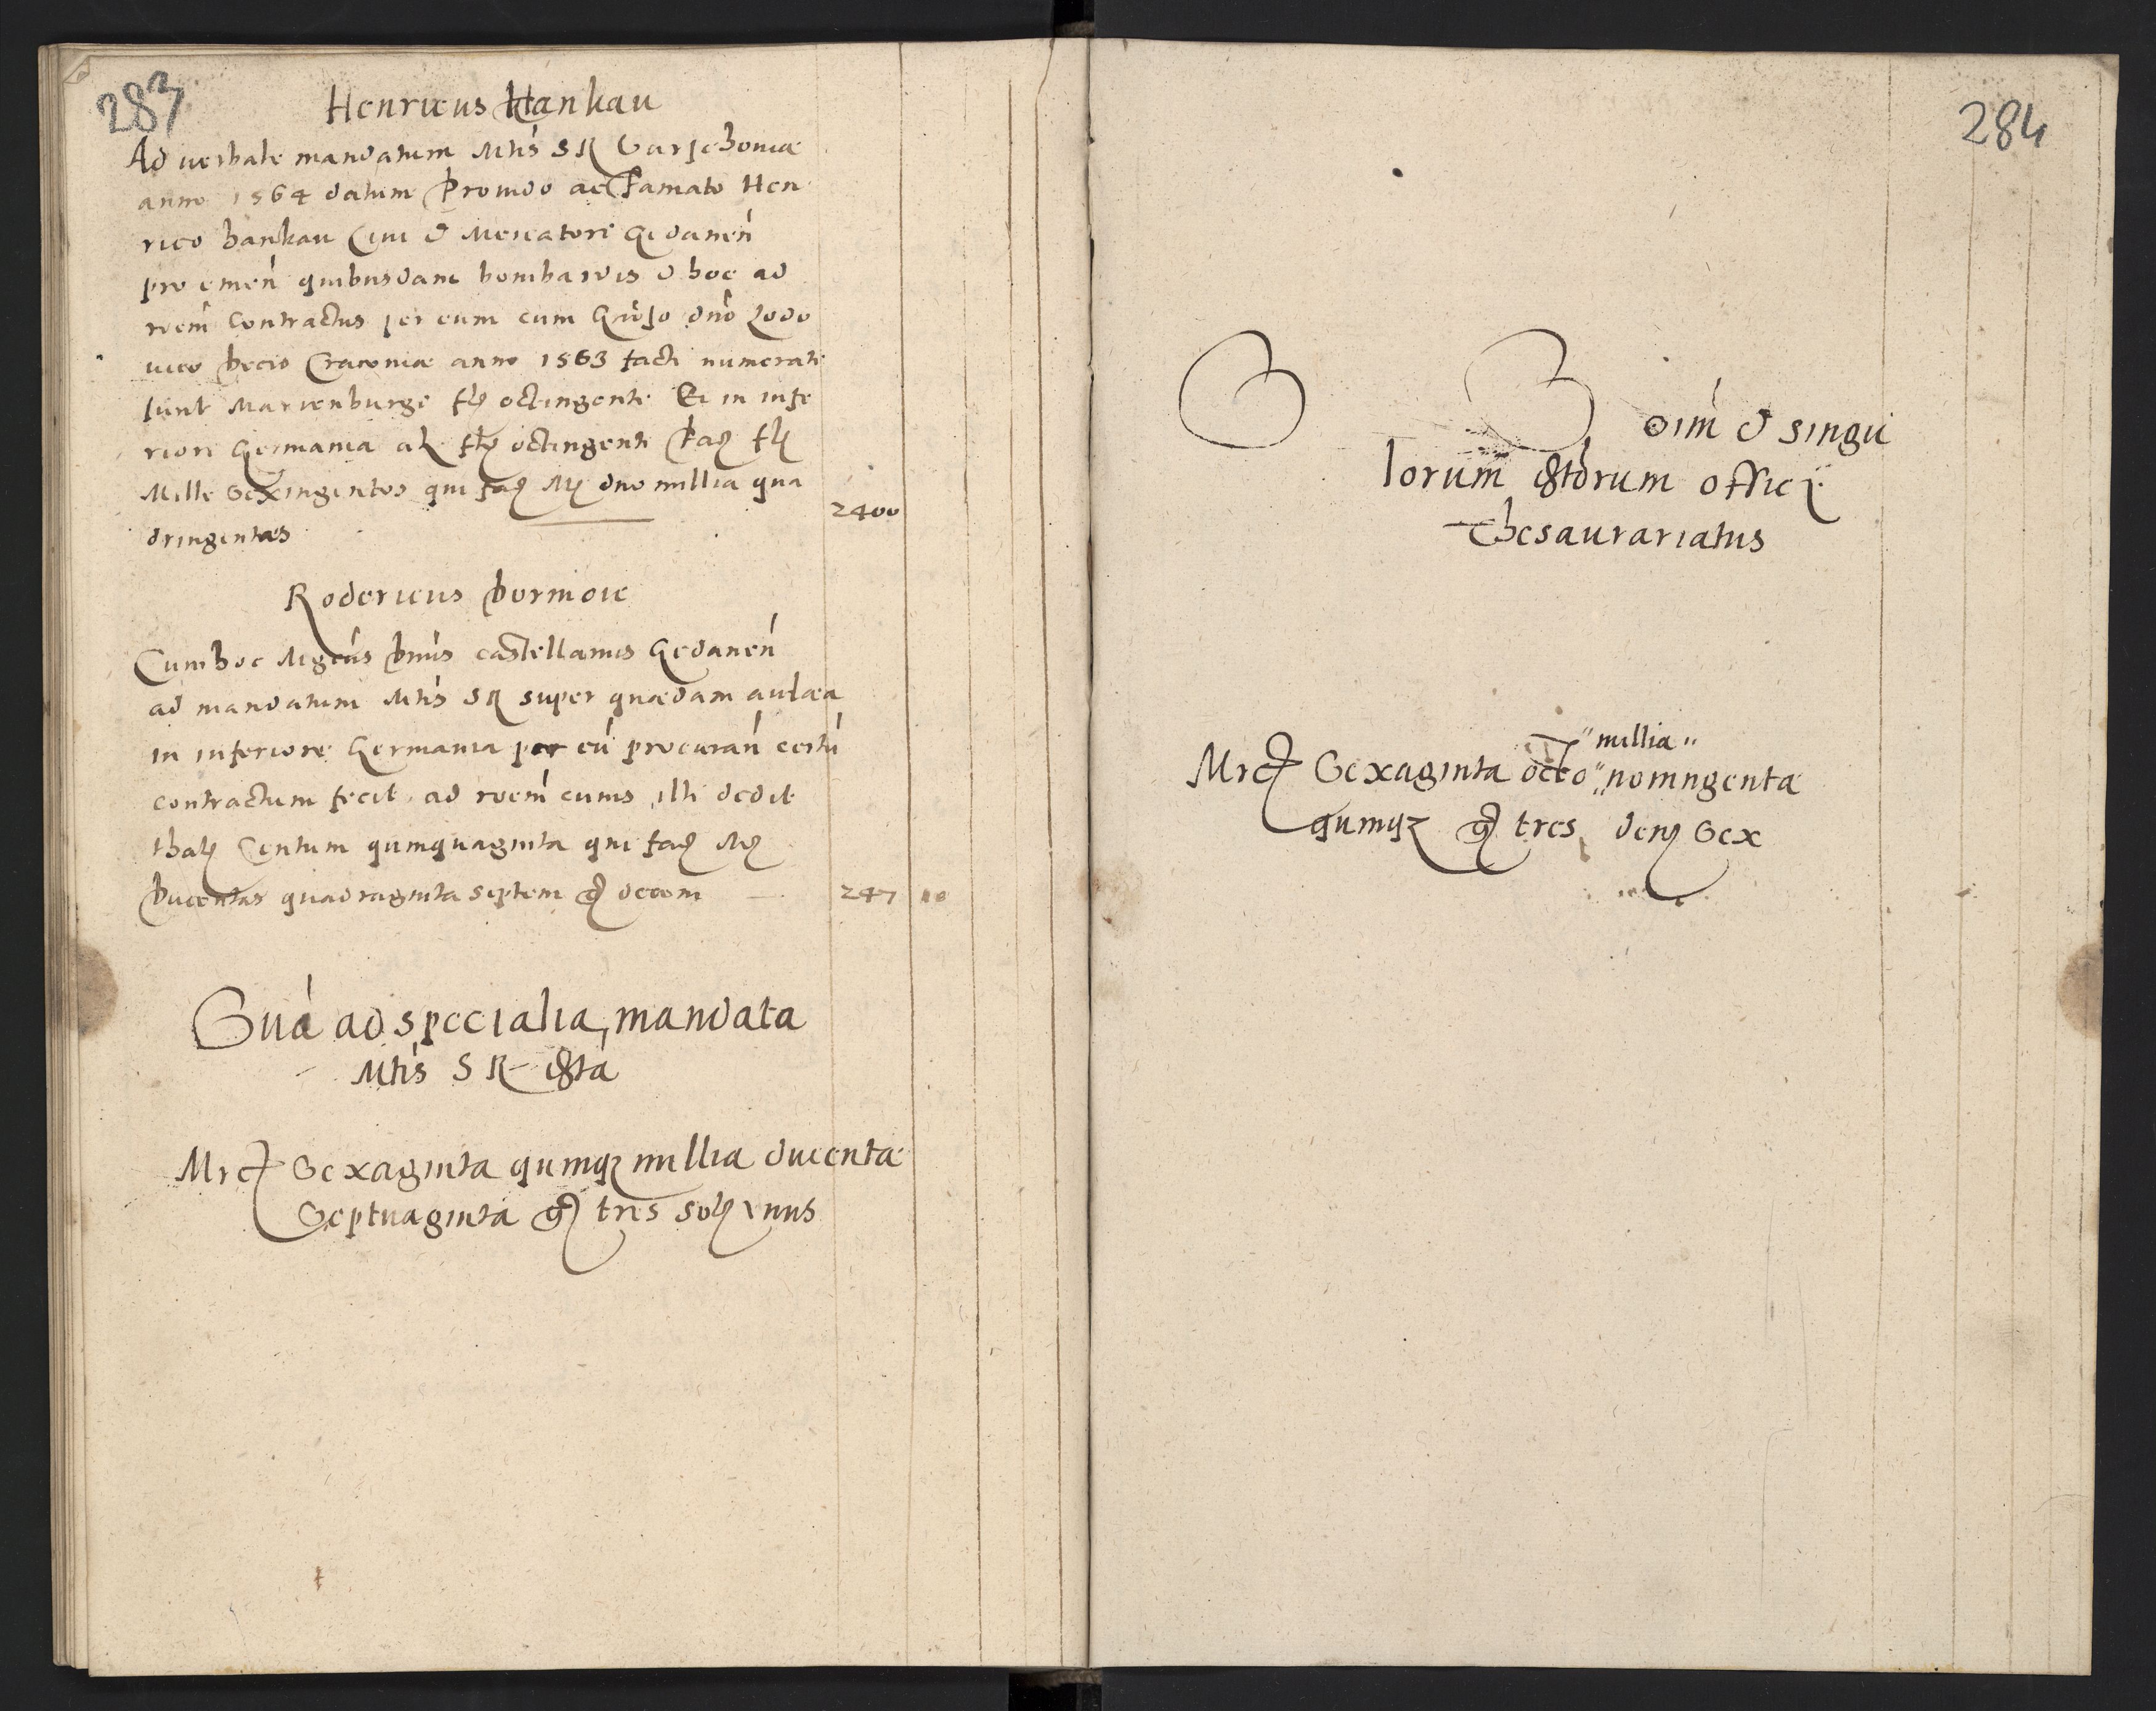 283
Henricus Hankau
Ad verbale mandatum Mtis SR Varschoviæ
anno 1564 datum Provido ac Famato Hen
rico Hankau Civi & Mercatori Gedanen
pro emen quibusdam bombardis & hoc ad
roem contractus per eum cum Gnoso dno Lodo
vico Decio Cracoviæ anno 1563 facti numerati
sunt Marienburge fl octingenti Et in infe
riori Germania al fl octingenti Fac fl
Mille Sexingentos qui fac Mr duo millia qua
dringentas
2400
Rodericus Dermoie
Cum hoc Mgcus Dnus castellanus Gedanen
ad mandatum Mtis SR super quædam aulæa
in inferiore Germania per eu procuran certu
contractum fecit, ad roem cuius illi dedit
thal Centum quinquaginta qui fac Mr
Ducentas quadraginta septem gr decem
247 10
Sua ad specialia, mandata
Mtis SR exta
Mrc Sexaginta quinq millia ducenta
Septuaginta gr tres sol unus
284
S S oim & singu
lorum extorum offici
Thesaurariatus
"millia"
Mrc Sexaginta octo "noningenta
quinq gr tres den Sex